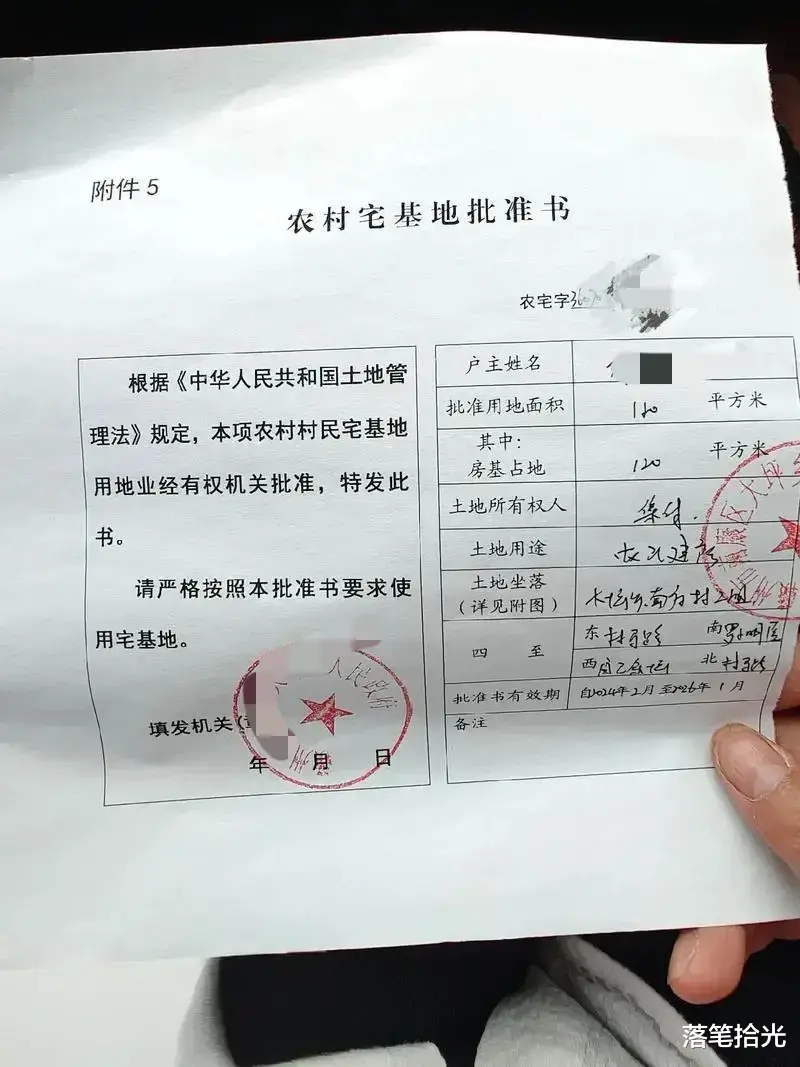 附件 5
农村宅基地批准书
农宅字
根据《中华人民共和国土地管
理法》规定，本项农村村民宅基地
用地业经有权机关批准，特发此
书。
请严格按照本批准书要求使
用宅基地。
填发机关（
人民政府
年 月 日
户主姓名
批准用地面积 120 平方米
其中：
房基占地 120 平方米
土地所有权人 集体
土地用途
土地坐落
（详见附图）
四 至
东 南
西 北
批准书有效期 自2024年2月至2026年1月
备注
落笔拾光